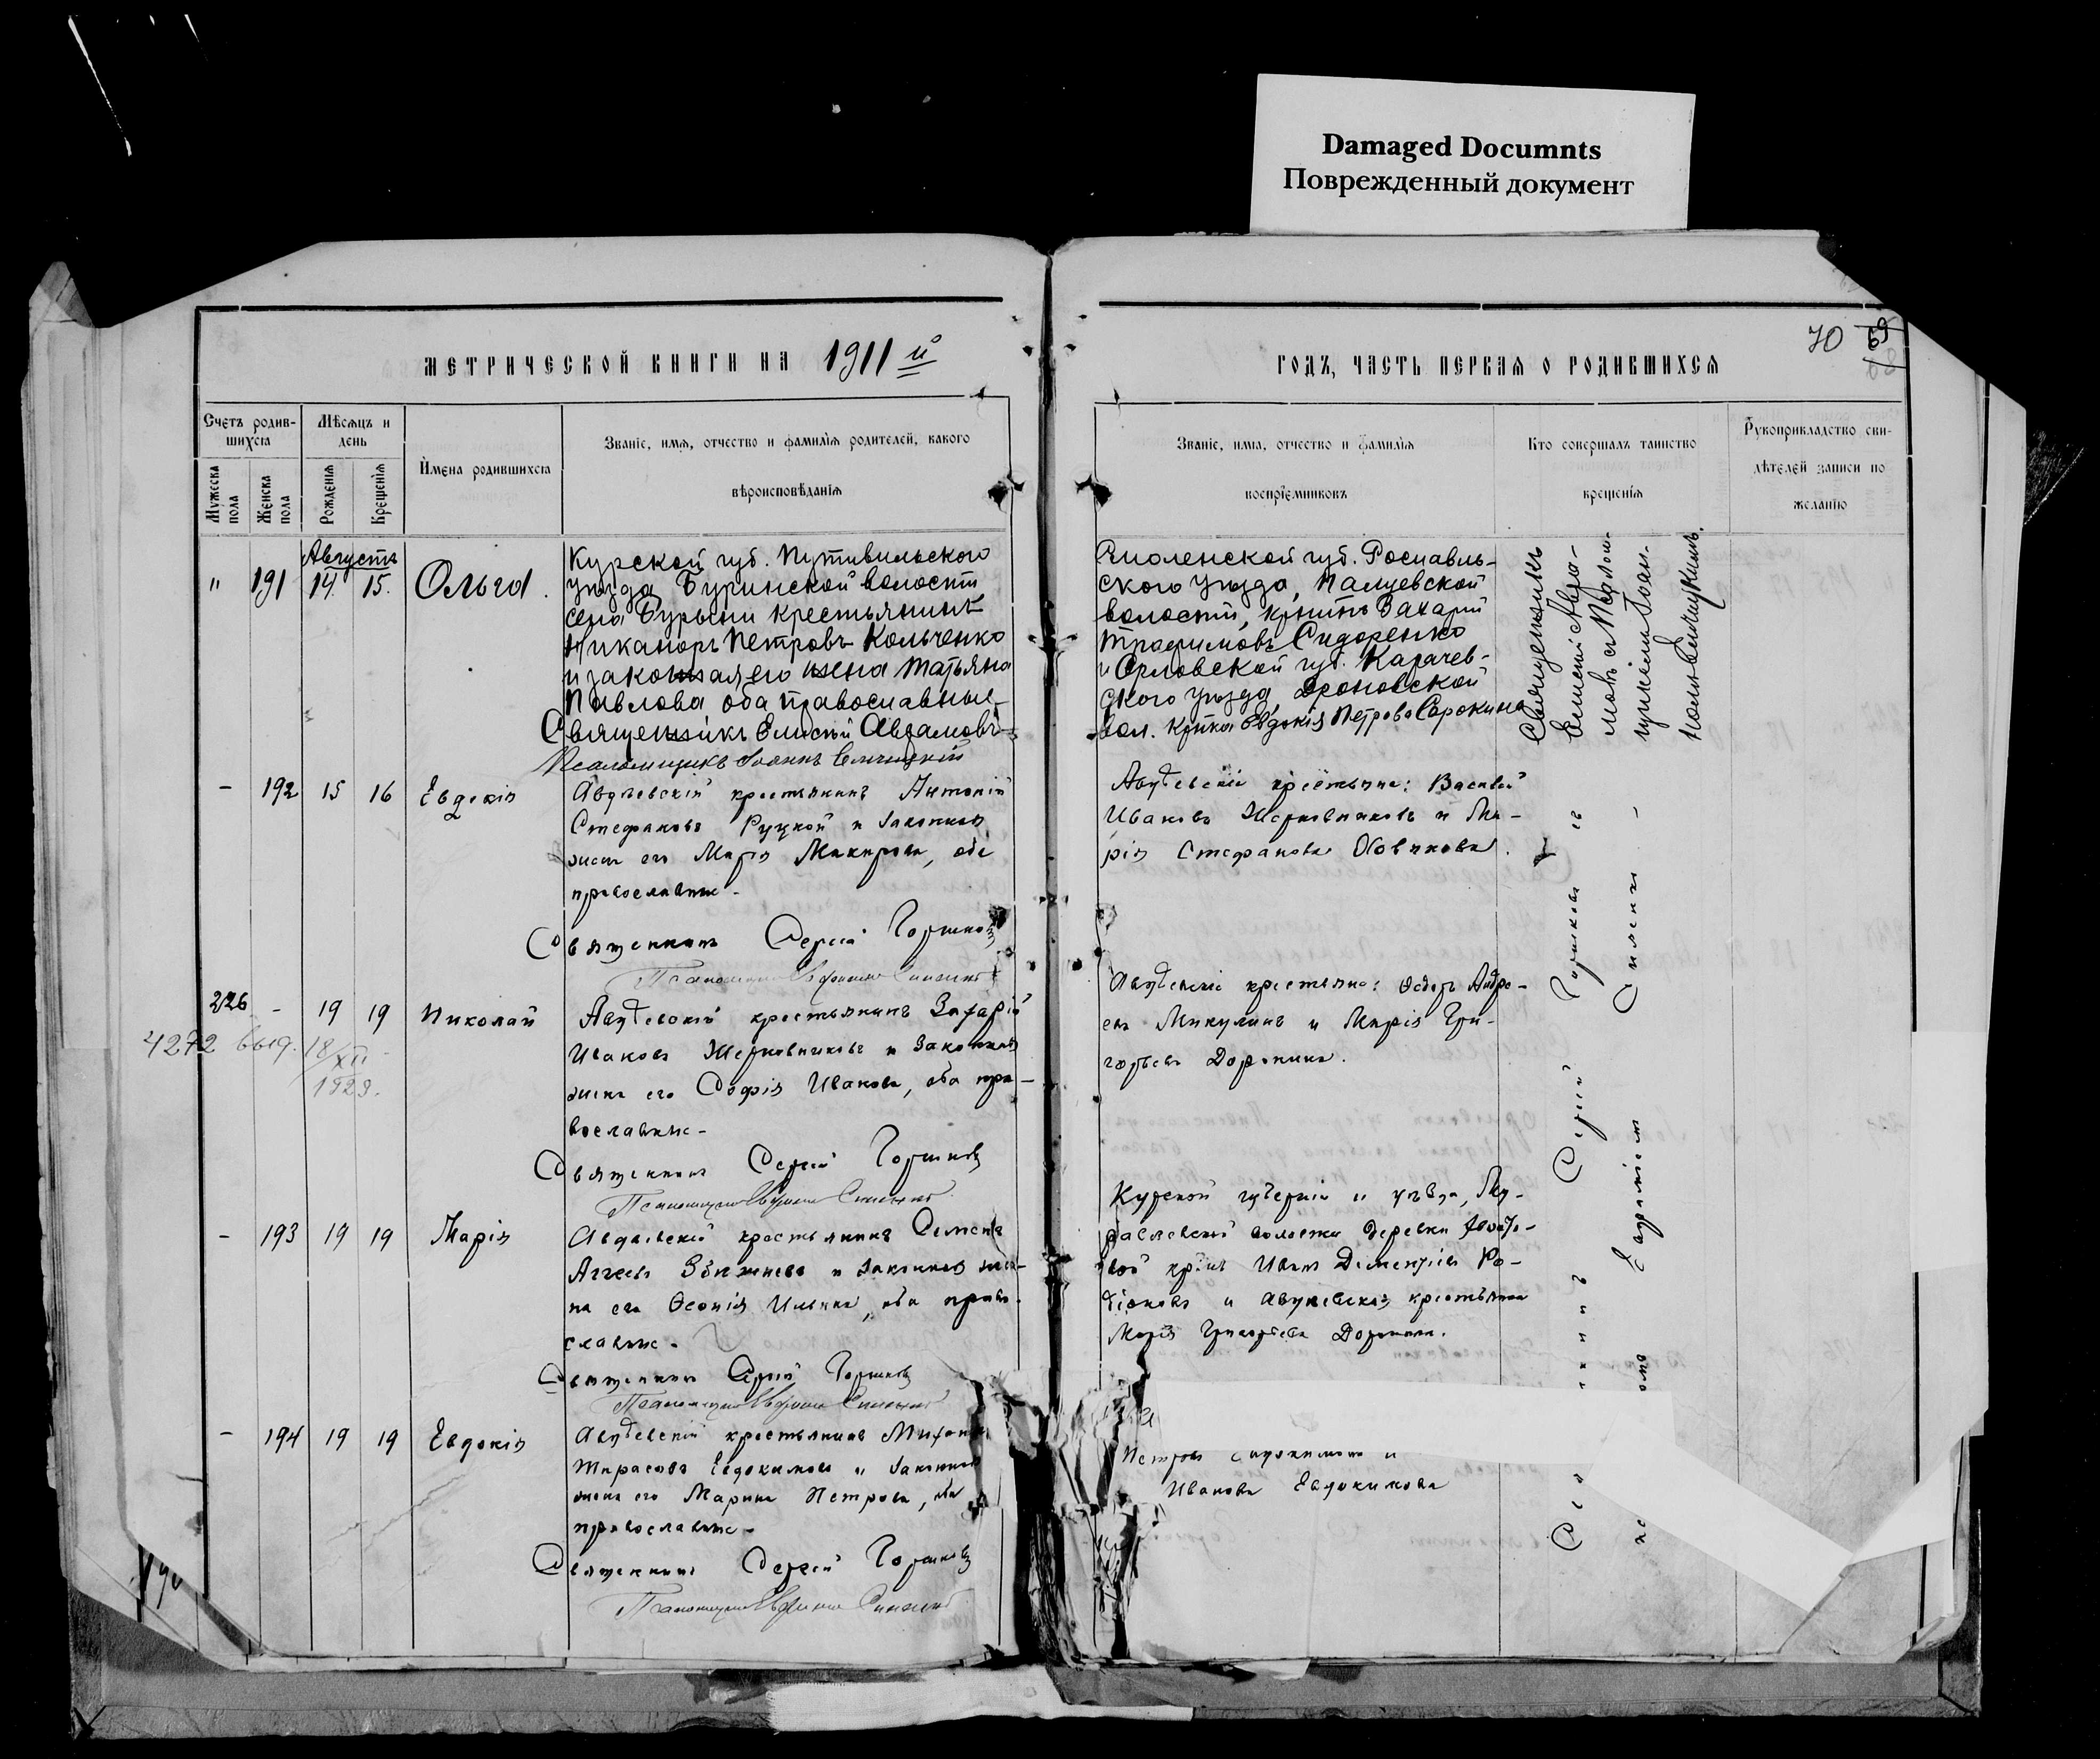 Damaged Documnts
Поврежденный документ
70 69
МЕТРИЧЕСКОЙ КНИГИ НА 1911 й
ГОДЪ, ЧАСТЬ ПЕРВАЯ О РОДИВШИХСЯ
Счетъ родив-
шихся
Мѣсяцъ и
день
Мужеска
пола
Женска
пола
Рожденія
Крещенія
Имена родившихся
Званіе, имя, отчество и фамилія родителей, какого
вѣроисповѣданія
Званіе, имя, отчество и фамилія
воспріемниковъ
Кто совершалъ таинство
крещенія
Рукоприкладство сви-
дѣтелей записи по
желанію
Августъ
" 191 14. 15. Ольга.
Курской губ. Путивильского
уѣзда, Буринской волости
села Бурыни крестьянинъ
Никаноръ Петровъ Кольченко
и законная его жена Татьяна
Павлова оба православные
Священникъ Елисей Авдамовъ
Псаломщикъ Іоаннъ
Смоленской губ. Рославль-
ского уѣзда, Палуевской
волости, кр-нинъ Захарій
Трафимовъ Сидоренко
и Орловской губ. Карачев-
ского уѣзда, Дроновской
вол. кр-нка Евдокія Петрова Сорокина
Священникъ
Елисей Авда-
мовъ съ Псалом-
щикомъ Іоан-
номъ
- 192 15 16 Евдокія
Авдѣевскій крестьянинъ Антоній
Стефановъ Руцкой и законная
жена его Марія Макарова, оба
православные -
Священникъ Сергій Горшковъ
Псаломщикъ Евфимій
Авдѣевскіе крестьяне: Василій
Ивановъ Жерновниковъ и Ма-
рія Стефанова Ховякова.
226 - 19 19 Николай
4272 выд. 18/XII
1923.
Авдѣевскій крестьянинъ Захарій
Ивановъ Жерновниковъ и законная
жена его Софія Иванова, оба пра-
вославные -
Священникъ Сергій Горшковъ
Псаломщикъ Евфимій
Авдѣевскіе крестьяне: Ѳедоръ Андре-
евъ Микулинъ и Марія Гри-
горьева Доронина.
- 193 19 19 Марія
Авдѣевскій крестьянинъ Семенъ
Аггеевъ и законная же-
на его Ѳеонія Ильина, оба право-
славные -
Священникъ Сергій Горшковъ
Псаломщикъ Евфимій
Курской губерніи и уѣзда, Му-
равлевской волости деревни
вой кр-нъ Иванъ Дементіевъ Ро-
діоновъ и Авдѣевская крестьянка
Марія Григорьева Доронина.
- 194 19 19 Евдокія
Авдѣевскій крестьянинъ
Тарасовъ Евдокимовъ и законная
жена его Марина Петрова, оба
православные -
Священникъ Сергій Горшковъ
Псаломщикъ Евфимій
Петровъ Евдокимовъ и
Иванова Евдокимова
Сергій Горшковъ съ